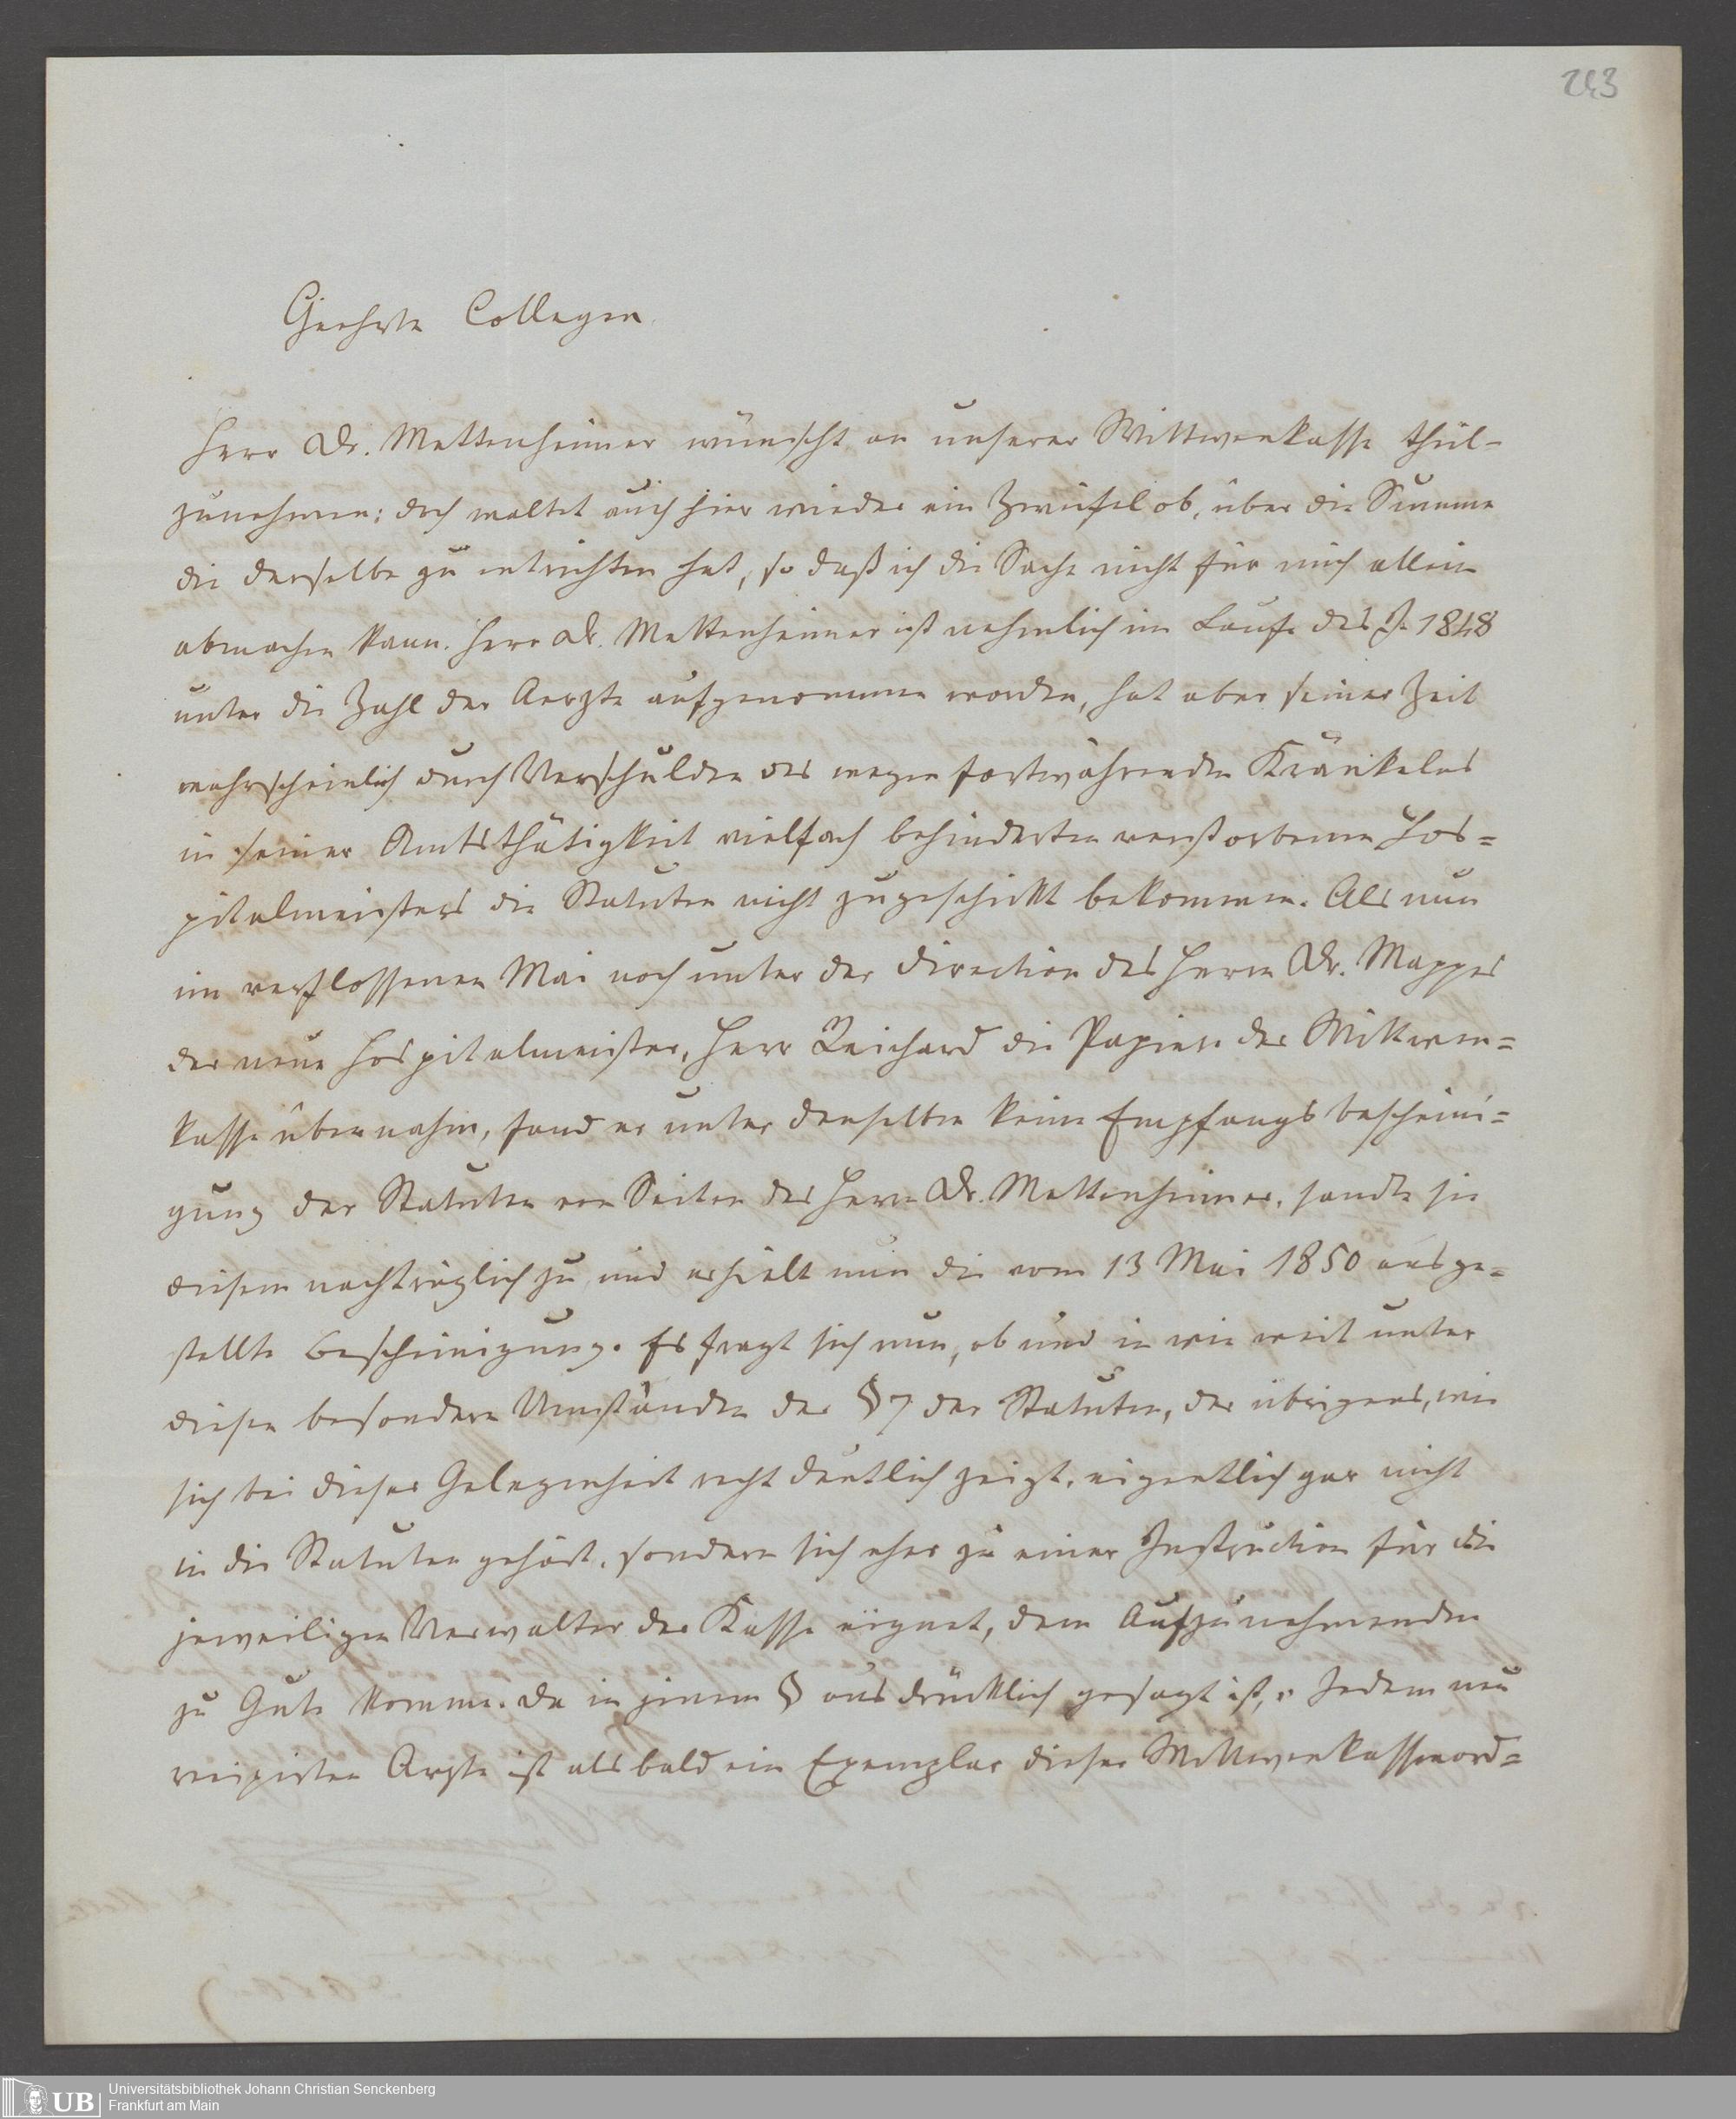 243
Geehrte Collegen
Herr Dr. Mettenheimer wünscht an unserer Wittwenkasse theil-
zunehmen; doch waltet auch hier wieder ein Zweifel ob, über die Summe
die derselbe zu entrichten hat, so daß ich die Sache nicht für mich allein
abmachen kann. Herr Dr. Mettenheimer ist nehmlich im Laufe des J. 1848
unter die Zahl der Aerzte aufgenommen worden, hat aber seiner Zeit
wahrscheinlich durch Verschulden des wegen fortwährenden Kränkelns
in seiner Amtsthätigkeit vielfach behinderten verstorbenen Hos=
pitalmeisters die Statuten nicht zugeschickt bekommen. Als nun
im verflossenen Mai noch unter der Direction des Herrn Dr. Mappes
der neue Hospitalmeister, Herr Reichard die Papiere der Wittwen=
kasse übernahm, fand er unter denselben keine Empfangsbescheini=
gung der Statuten von Seiten des Herrn Dr. Mettenheimer, sandte sie
diesem nachträglich zu und erhielt nun die vom 13 Mai 1850 ausge=
stellte Bescheinigung. Es fragt sich nun, ob und in wie weit unter
diesen besondern Umständen der § 7 der Statuten, der übrigens, wie
sich bei dieser Gelegenheit recht deutlich zeigt, eigentlich gar nicht
in die Statuten gehört, sondern sich eher zu einer Instruction für die
jeweiligen Verwalter der Kasse eignet, dem Aufzunehmenden
zu Gute komme. Da in jenem § ausdrücklich gesagt ist, „Jedem neu
recipirten Arzte ist alsbald ein Exemplar dieser Wittwenkassenord=
UB
Universitätsbibliothek Johann Christian Senckenberg
Frankfurt am Main